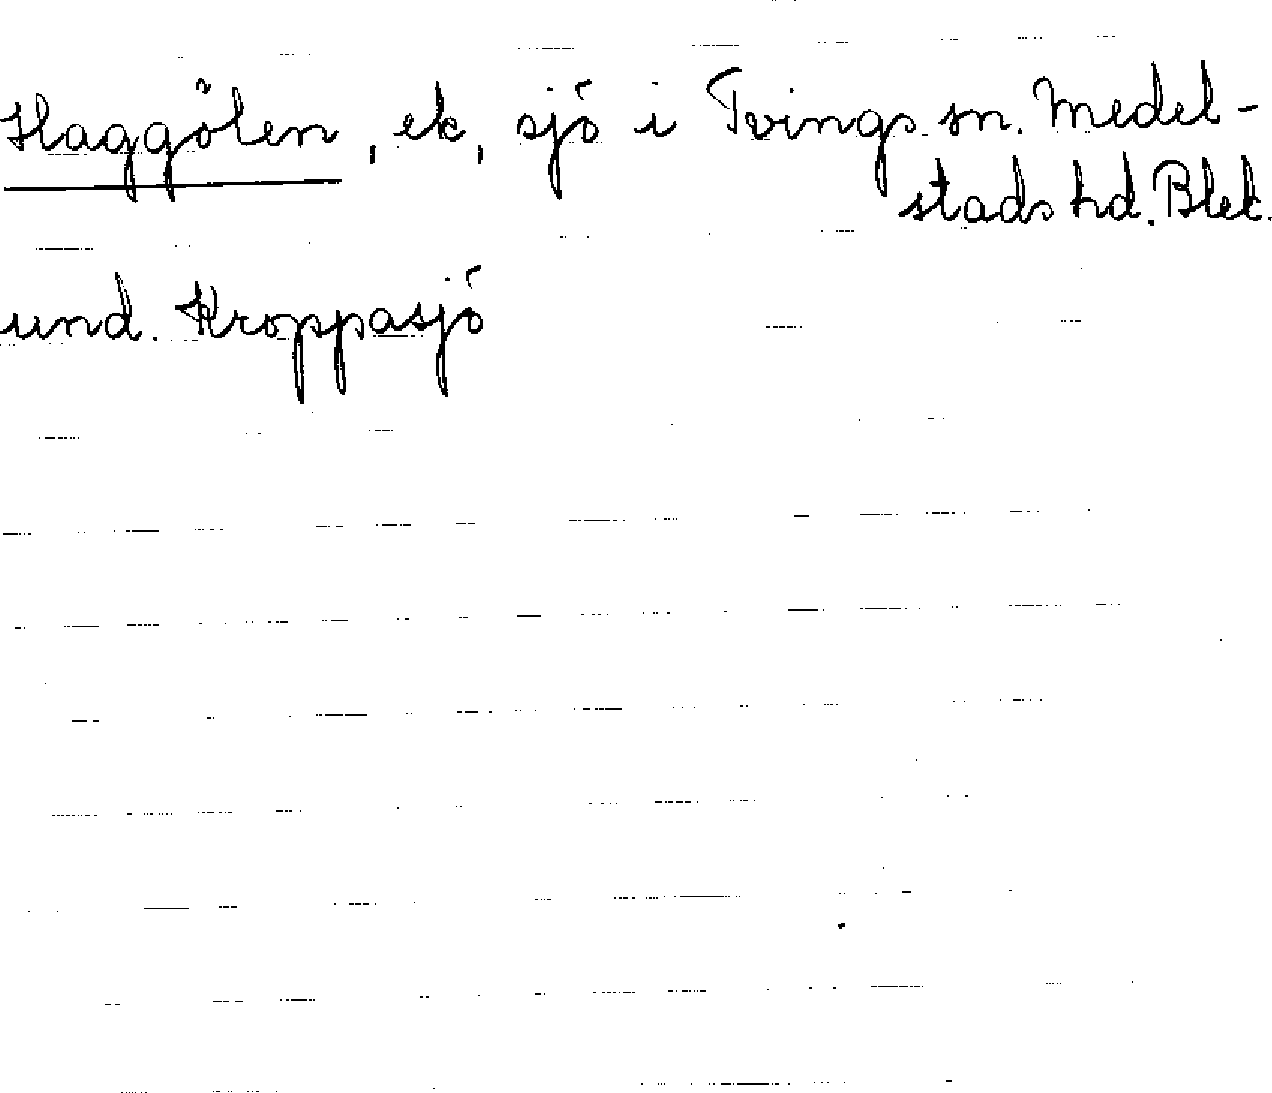 Haggölen, ek, sjö i Tvings sn. Medel-
stads hd. Blek.
und. Kroppasjö